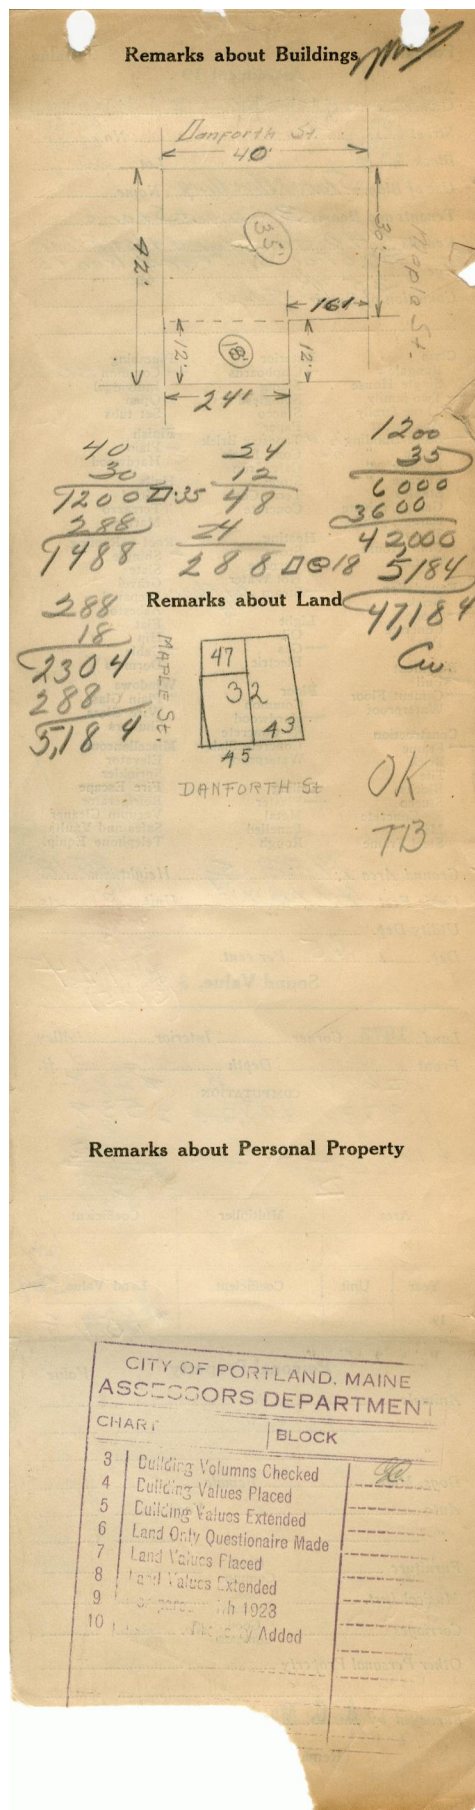 Remarks about Buildings
Danforth St.
40'
42'
35'
30'
Maple St.
16'
12'
18'
12'
24'
40
30
1200 □ · 35
288
1488
24
12
48
24
288 □ @ 18
1200
35
6000
3600
42,000
5,184
47,184
Remarks about Land
288
18
2304
288
5,184
MAPLE St.
47
32
43
45
DANFORTH St
OK
TB
Remarks about Personal Property
CITY OF PORTLAND, MAINE
ASSESSORS DEPARTMENT
CHART
BLOCK
3 Building Volumns Checked
4 Building Values Placed
5 Building Values Extended
6 Land Only Questionaire Made
7 Land Values Placed
8 Land Values Extended
9 1923
10 Added